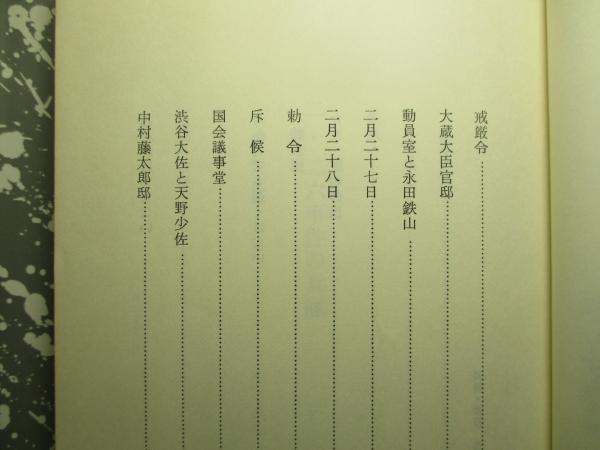 戒厳令
大蔵大臣官邸
動員室と永田鉄山
二月二十七日
二月二十八日
勅令
斥候
国会議事堂
渋谷大佐と天野少佐
中村藤太郎邸